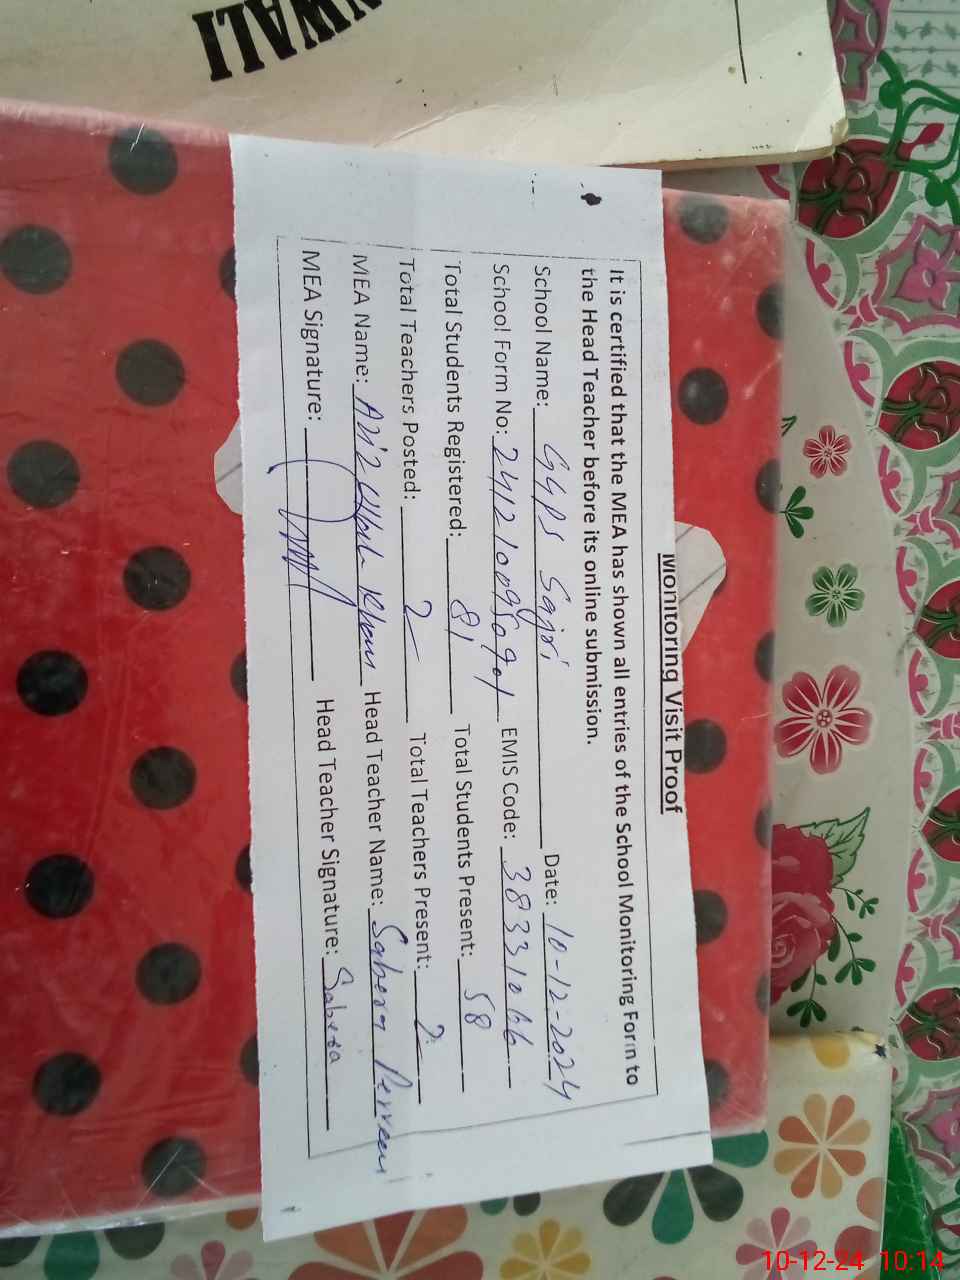 NWALI
Monitoring Visit Proof
It is certified that the MEA has shown all entries of the School Monitoring Form to
the Head Teacher before its online submission.
School Name: GGPS Sajri Date: 10-12-2024
School Form No: EMIS Code: 38331066
Total Students Registered: 81 Total Students Present: 58
Total Teachers Posted: 2 Total Teachers Present: 2
MEA Name: Aziz Ullah Khan Head Teacher Name: Sabera Perveen
MEA Signature: Head Teacher Signature: Sabera
10-12-24 10:14